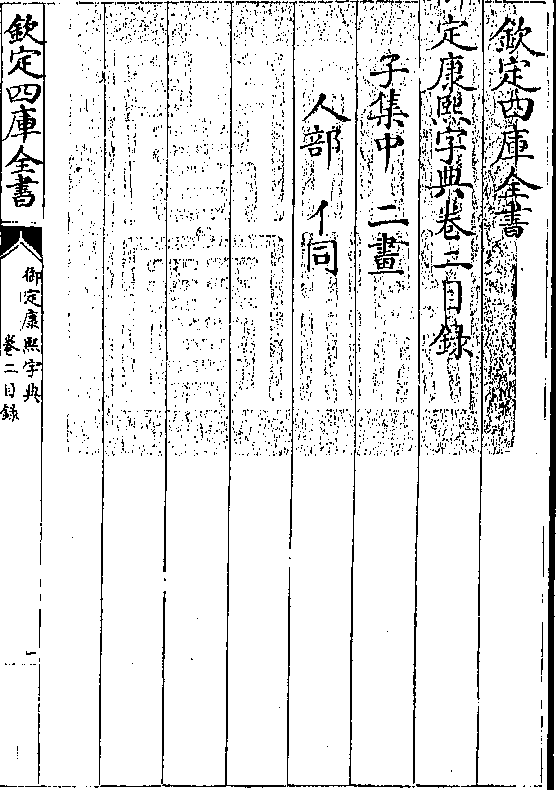 欽定四庫全書
定康熙字典卷二目録
子集中 二畫
人部 亻同
欽定四庫全書
御定康熙字典
卷二目録
一